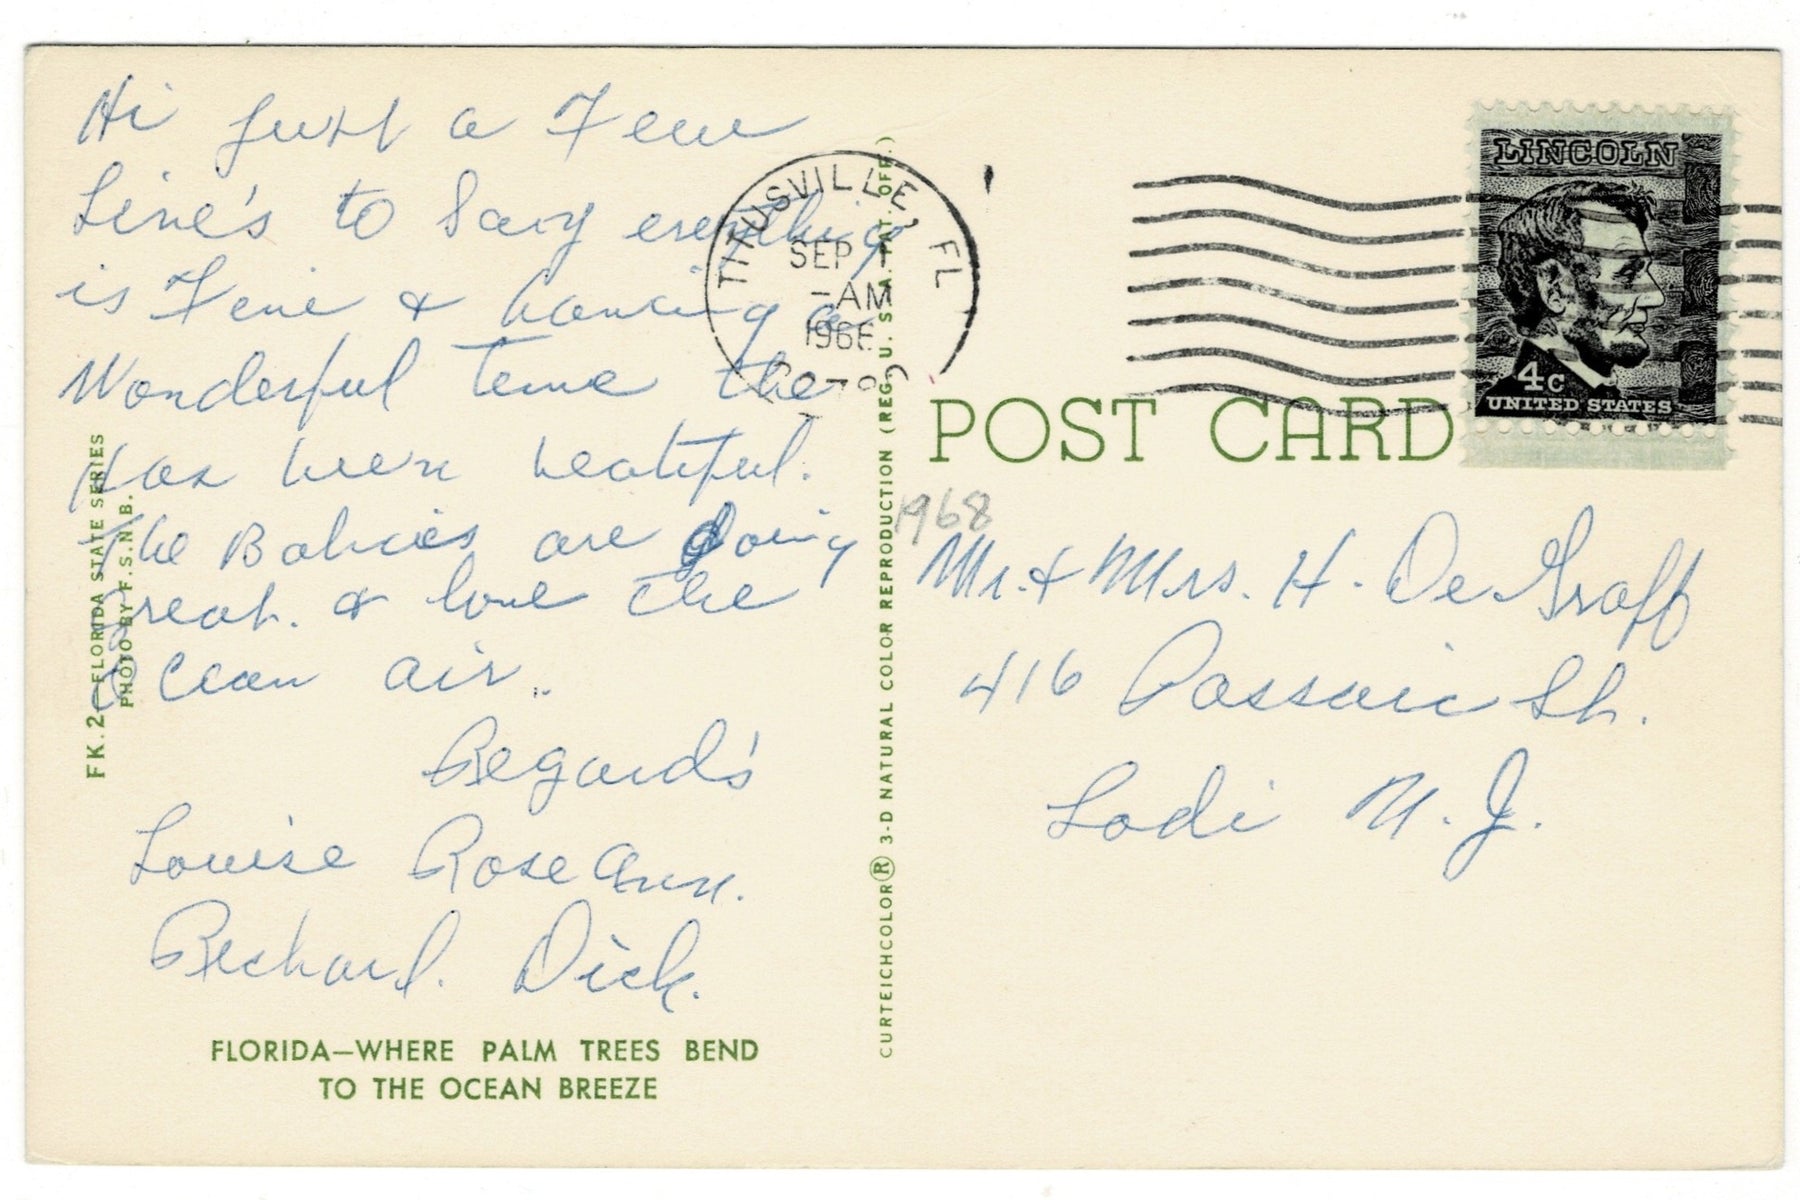 Hi just a Few
Line's to Say everything
is Fine & having a
Wonderful time the
has been beatiful.
The Babies are doing
Great. & love the
Ocean air.
Regard's
Louise Rose Ann.
Richard. Dick.
FLORIDA—WHERE PALM TREES BEND
TO THE OCEAN BREEZE
FK. 2—FLORIDA STATE SERIES
PHOTO BY F.S.N.B.
CURTEICHCOLOR® 3-D NATURAL COLOR REPRODUCTION (REG. U. S. A. PAT. OFF.)
TITUSVILLE, FL
SEP 1
-AM
196
LINCOLN
4c
UNITED STATES
POST CARD
1968
Mr. & Mrs. H. De Graff
416 Passaic St.
Lodi N.J.